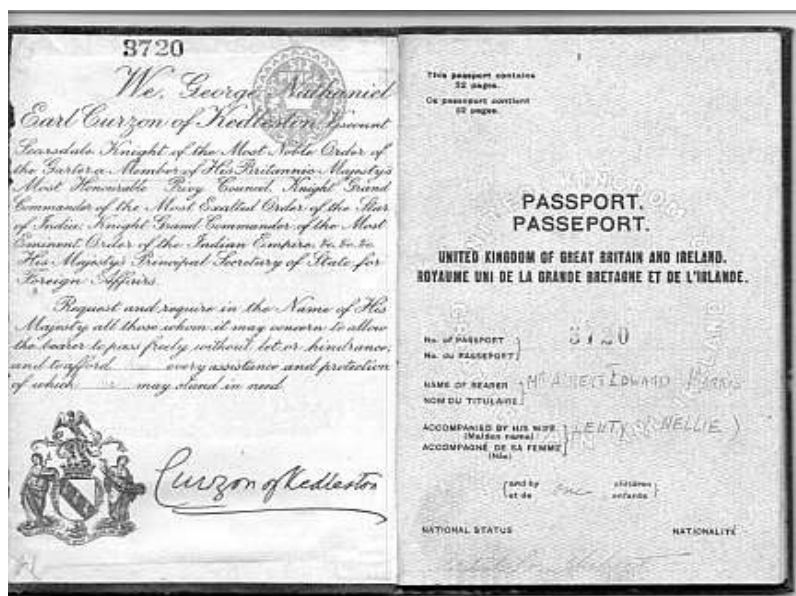 3720
We, George Nathaniel
Earl Curzon of Kedleston, Viscount
Scarsdale, Knight of the Most Noble Order of
the Garter, a Member of His Britannic Majesty's
Most Honourable Privy Council, Knight Grand
Commander of the Most Exalted Order of the Star
of India, Knight Grand Commander of the Most
Eminent Order of the Indian Empire, &c. &c. &c.
His Majesty's Principal Secretary of State for
Foreign Affairs.
Request and require in the Name of His
Majesty all those whom it may concern to allow
the bearer to pass freely without let or hindrance,
and to afford every assistance and protection
of which may stand in need.
Curzon of Kedleston
1
This passport contains
32 pages.
Ce passeport contient
32 pages.
PASSPORT.
PASSEPORT.
UNITED KINGDOM OF GREAT BRITAIN AND IRELAND.
ROYAUME UNI DE LA GRANDE BRETAGNE ET DE L'IRLANDE.
No. of PASSPORT
No. du PASSEPORT
3720
NAME OF BEARER
NOM DU TITULAIRE
Mr ALBERT EDWARD HARRIS
ACCOMPANIED BY HIS WIFE
(Maiden name)
ACCOMPAGNÉ DE SA FEMME
(Née)
(NELLIE)
and by one children
et de enfants
NATIONAL STATUS NATIONALITÉ